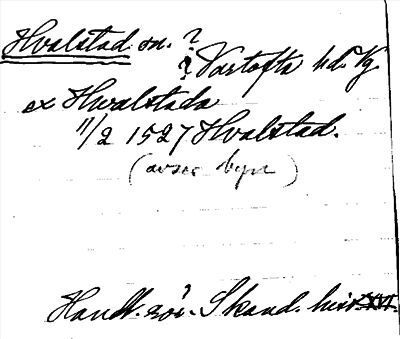 Hvalstad sn. ?
? Vartofta hd. Vg.
ex Hwalstada
11/2 1527 Hvalstad.
(avser byn)
Handl. rör. Skand. hist. XVI.